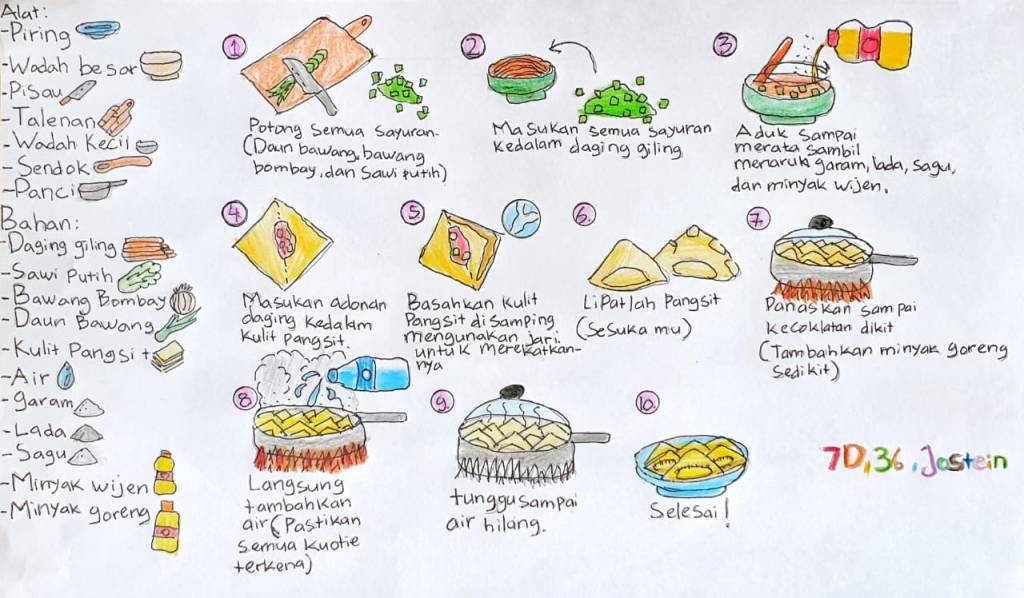 Alat:
-Piring
-Wadah besar
-Pisau
-Talenan
-Wadah Kecil
-Sendok
-Panci
Bahan:
-Daging giling
-Sawi Putih
-Bawang Bombay
-Daun Bawang
-Kulit Pangsit
-Air
-garam
-Lada
-Sagu
-Minyak wijen
-Minyak goreng
1
Potong semua sayuran.
(Daun bawang, bawang
bombay, dan sawi putih)
2
Masukan semua sayuran
kedalam daging giling
3
Aduk sampai
merata sambil
menaruh garam, lada, sagu,
dan minyak wijen.
4.
Masukan adonan
daging kedalam
kulit pangsit.
5.
Basahkan kulit
Pangsit disamping
mengunakan jari
untuk merekatkan-
nya
6.
Lipatlah Pangsit
(Sesuka mu)
7.
Panaskan sampai
kecoklatan dikit
(Tambahkan minyak goreng
sedikit)
8.
Langsung
tambahkan
air (Pastikan
semua kuotie
terkena)
9.
tunggu sampai
air hilang.
10.
Selesai!
7D,36,Jastein